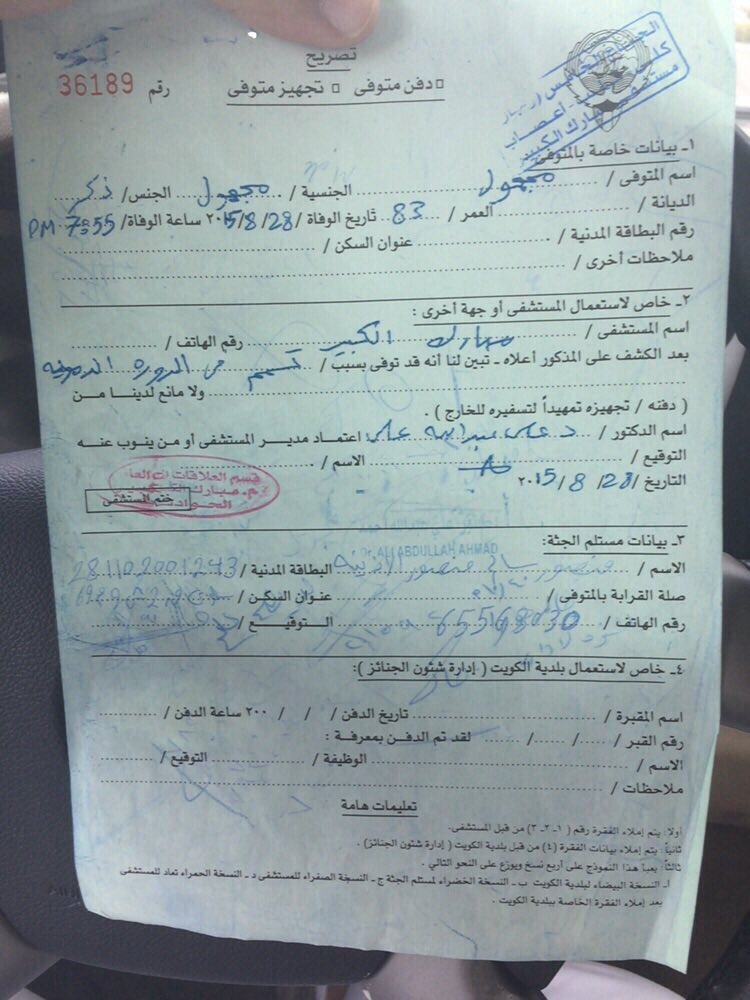 تصريح
□ دفن متوفى □ تجهيز متوفى
رقم 36189
مستشفى مبارك الكبير
١ـ بيانات خاصة بالمتوفى
اسم المتوفى / مجهول الجنسية / مجهول الجنس/ ذكر
الديانة / العمر / 83 تاريخ الوفاة /28/8/٢٠15 ساعة الوفاة/ 7:55 PM
رقم البطاقة المدنية / عنوان السكن /
ملاحظات أخرى /
٢ـ خاص لاستعمال المستشفى أو جهة أخرى :
اسم المستشفى / مبارك الكبير رقم الهاتف /
بعد الكشف على المذكور أعلاه ـ تبين لنا أنه قد توفى بسبب / تسمم في الدورة الدموية
ولا مانع لدينا من
( دفنه / تجهيزه تمهيداً لتسفيره للخارج ) .
اسم الدكتور / د علي عبدالله علي اعتماد مدير المستشفى أو من ينوب عنه
التوقيع / الاسم /
التاريخ /28/ 8 /٢٠15
قسم العلاقات العامة
م. مبارك
الحوادث
ختم المستشفى
٣ـ بيانات مستلم الجثة:
Dr. ALI ABDULLAH AHMAD
الاسم / منصور سالم منصور البطاقة المدنية / 281102001243
صلة القرابة بالمتوفى / عنوان السكن /
رقم الهاتف / 65568030 التوقيع /
٤ـ خاص لاستعمال بلدية الكويت ( إدارة شئون الجنائز ):
اسم المقبرة / تاريخ الدفن / / / ٢٠٠ ساعة الدفن /
رقم القبر / / / لقد تم الدفن بمعرفة :
الاسم / الوظيفة / التوقيع /
ملاحظات /
تعليمات هامة
أولا: يتم إملاء الفقرة رقم (١-٢-٣) من قبل المستشفى.
ثانياً: يتم إملاء بيانات الفقرة (٤) من قبل بلدية الكويت ( إدارة شئون الجنائز ) .
ثالثاً: يعبأ هذا النموذج على أربع نسخ ويوزع على النحو التالي .
أ ـ النسخة البيضاء لبلدية الكويت ب ـ النسخة الخضراء لمستلم الجثة ج ـ النسخة الصفراء للمستشفى د ـ النسخة الحمراء تعاد للمستشفى
بعد إملاء الفقرة الخاصة ببلدية الكويت .